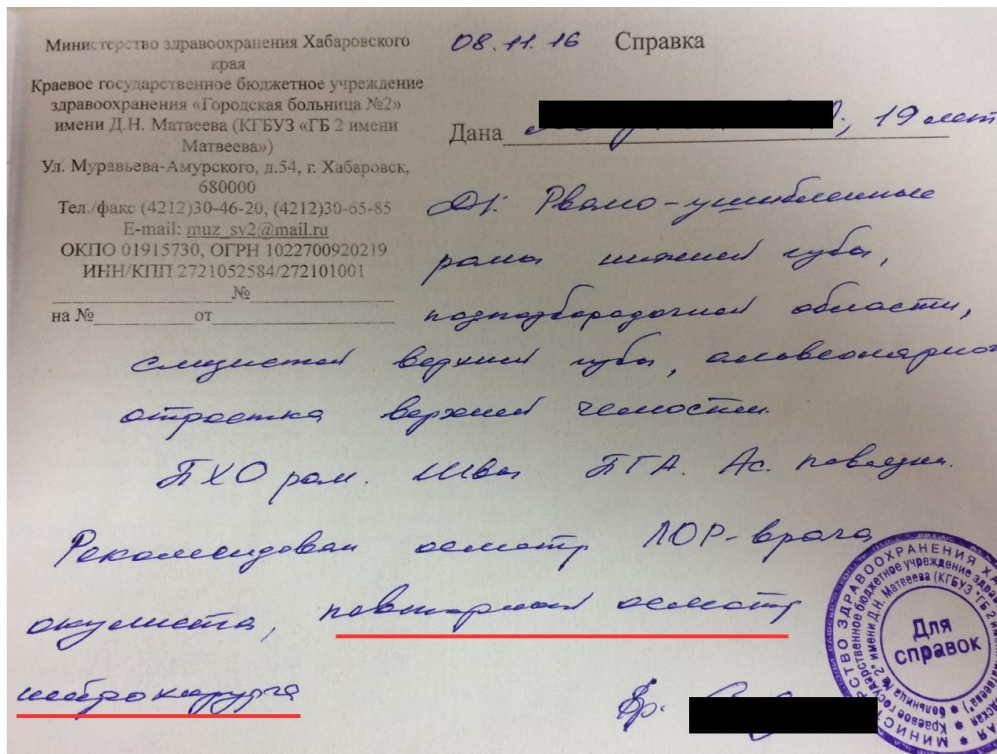 Министерство здравоохранения Хабаровского
края
Краевое государственное бюджетное учреждение
здравоохранения «Городская больница №2»
имени Д.Н. Матвеева (КГБУЗ «ГБ 2 имени
Матвеева»)
Ул. Муравьева-Амурского, д.54, г. Хабаровск,
680000
Тел./факс (4212)30-46-20, (4212)30-65-85
E-mail: muz_sv2@mail.ru
ОКПО 01915730, ОГРН 1022700920219
ИНН/КПП 2721052584/272101001
№
на № от
08.11.16 Справка
Дана 19 лет
Ds: Рвано-ушибленные
раны нижней губы,
подподбородочной области,
слизистой верхней губы, альвеолярного
отростка верхней челюсти.
ПХО ран. Швы ПГА. Ас. повязка.
Рекомендован осмотр ЛОР-врача,
окулиста, повторный осмотр
нейрохирурга
Вр.
Для
справок